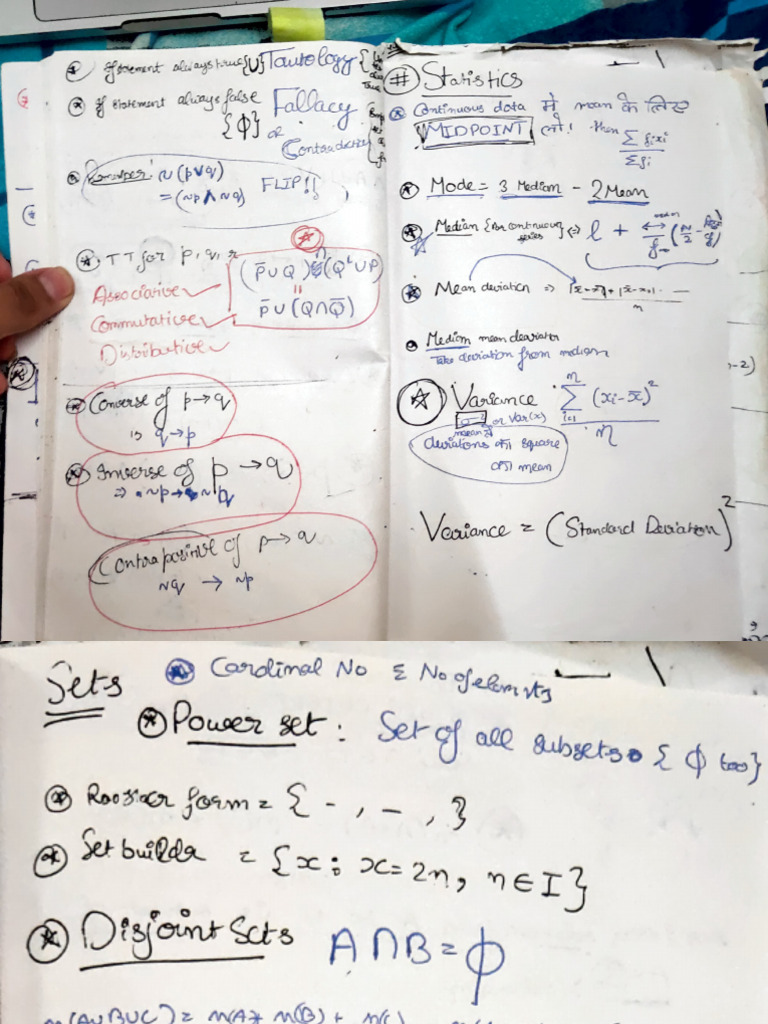 If statement always true {U} Tautology
If statement always false Fallacy
{ϕ} or
Remember: ~(p∨q) FLIP!!
= (~p ∧ ~q)
TT for p, q, r
Associative
Commutative
Distributive
p̄∪(Q∩Q̄)
Converse of p→q
is q→p
Inverse of p→q
⇒ ~p→~q
Contrapositive of p→q
~q → ~p
# Statistics
Continuous data में mean के लिए
MIDPOINT लो! then Σfixi/Σfi
Mode = 3 Median - 2 Mean
Median {for continuous series} ⇔ l +
Mean deviation ⇒
n
Median mean deviation
Take deviation from median
Variance Σ(i=1 to n) (xi-x̄)²/n
or Var(x)
mean of
deviations of square
of mean
Variance = (Standard Deviation)²
Sets
Cardinal No Σ No of elements
Power set: Set of all subsets {ϕ too}
form = { -, -, }
Set builder = {x : x=2n, n∈I}
Disjoint Sets A∩B=ϕ
n(A∪B∪C) =